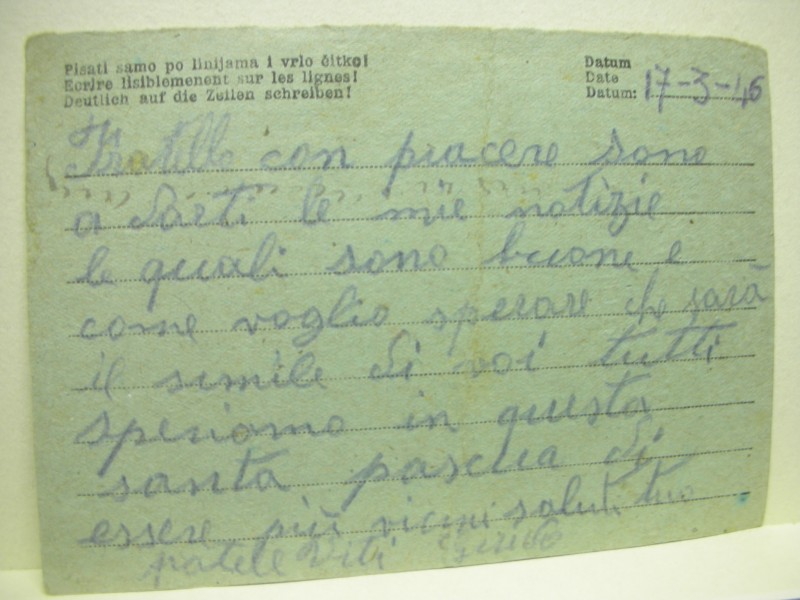 Pisati samo po linijama i vrlo čitko!
Ecrire lisiblemenent sur les lignes!
Deutlich auf die Zeilen schreiben!
Datum
Date
Datum: 17-3-46
Fratello con piacere sono
a darti le mie notizie
le quali sono buone e
come voglio sperare che sarà
il simile di voi tutti
speriamo in questa
santa pascua di
essere più vicini saluti tuo